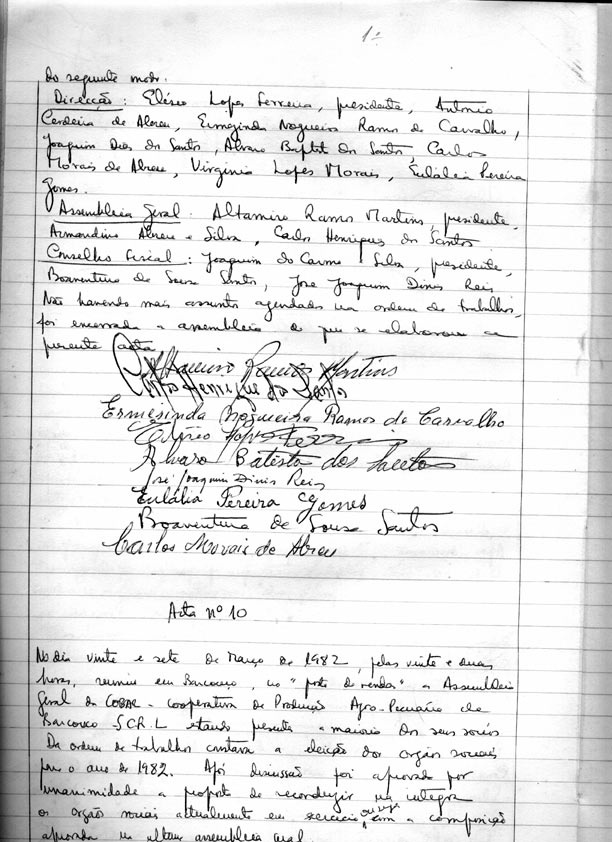 1º
do seguinte modo.
Direcção: Elísio Lopes Ferreira, presidente, António
Cerdeira de Abreu, Ermezinda Nogueira Ramos de Carvalho,
Joaquim Dias dos Santos, Alvaro Baptist dos Santos, Carlos
Morais de Abreu, Virginia Lopes Morais, Eulália Pereira
Gomes.
Assembleia Geral: Altamiro Ramos Martins, presidente,
Armandino Abreu e Silva, Carlos Henriques dos Santos
Conselho Fiscal: Joaquim do Carmo Silva, presidente,
Boaventura de Sousa Santos, José Joaquim Dinis Reis
Não havendo mais assuntos agendados na ordem de trabalhos,
foi encerrada a assembleia do que se elaborou a
presente acta.
Altamiro Ramos Martins
Carlos Henriques dos Santos
Ermesinda Nogueira Ramos de Carvalho
Elísio Lopes Ferreira
Alvaro Batista dos Santos
José Joaquim Dinis Reis
Eulália Pereira Gomes
Boaventura de Sousa Santos
Carlos Morais de Abreu
Acta nº 10
No dia vinte e sete de Março de 1982, pelas vinte e duas
horas, reuniu em Barcouço, no "posto de vendas" a Assembleia
Geral da COBAR - cooperativa de Produção Agro-Pecuária de
Barcouço - SCR.L estando presente a maioria dos seus sócios
Da ordem de trabalho constava a eleição dos orgãos sociais
para o ano de 1982. Após discussão foi aprovado por
unanimidade a proposta de reconduzir na integra
os orgãos sociais actualmente em exercício com a composição
aprovada na última assembleia geral.